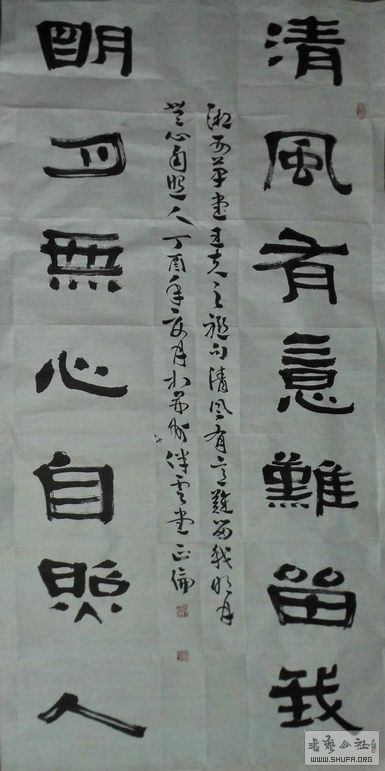 清風有意難留我
湘西草堂王夫之句清風有意難留我明月
無心自照人丁酉年夏月於蘇州伴雲堂正倫
明月無心自照人
書藝公社
WWW.SHUFA.ORG